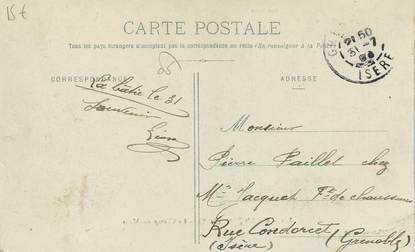 15 €
CARTE POSTALE
Tous les pays étrangers n'acceptent pas la correspondance au recto (Se renseigner à la Poste)
CORRESPONDANCE
ADRESSE
ISÈRE
31 - 7
La le 31
Souvenir
Monsieur
Pierre Paillet chez
Mr Jacquet Ft de chaussures
Rue Condorcet (Grenoble)
(Isère)